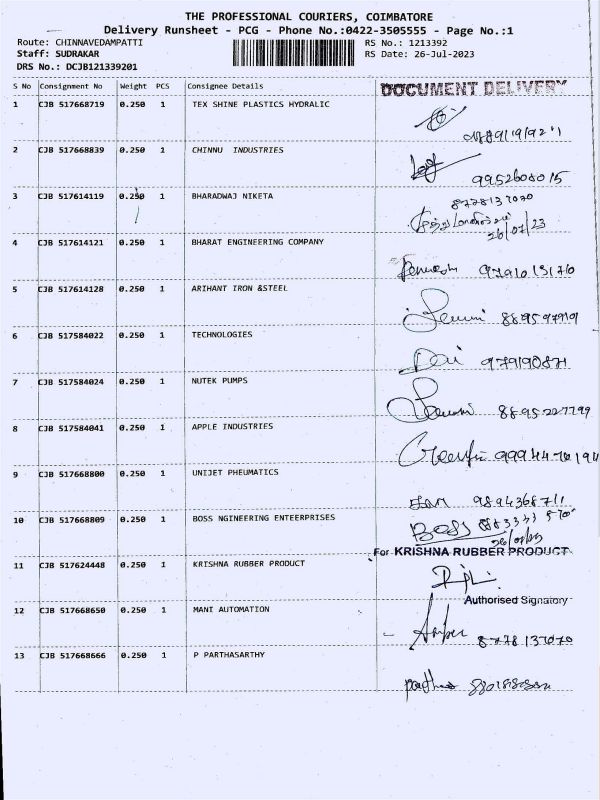 THE PROFESSIONAL COURIERS, COIMBATORE
Delivery Runsheet - PCG - Phone No.:0422-3505555 - Page No.:1
Route: CHINNAVEDAMPATTI RS No.: 1213392
Staff: SUDRAKAR RS Date: 26-Jul-2023
DRS No.: DCJB121339201
S No Consignment No Weight PCS Consignee Details DOCUMENT DELIVERY
1 CJB 517668719 0.250 1 TEX SHINE PLASTICS HYDRALIC
2 CJB 517668839 0.250 1 CHINNU INDUSTRIES
3 CJB 517614119 0.250 1 BHARADWAJ NIKETA
8778137070
26/07/23
4 CJB 517614121 0.250 1 BHARAT ENGINEERING COMPANY
5 CJB 517614128 0.250 1 ARIHANT IRON &STEEL
6 CJB 517584022 0.250 1 TECHNOLOGIES
7 CJB 517584024 0.250 1 NUTEK PUMPS
8895227799
8 CJB 517584041 0.250 1 APPLE INDUSTRIES
9 CJB 517668800 0.250 1 UNIJET PHEUMATICS
9894368711
10 CJB 517668809 0.250 1 BOSS NGINEERING ENTEERPRISES
Boss
For KRISHNA RUBBER PRODUCT
11 CJB 517624448 0.250 1 KRISHNA RUBBER PRODUCT
Authorised Signatory
12 CJB 517668650 0.250 1 MANI AUTOMATION
8778137070
13 CJB 517668666 0.250 1 P PARTHASARTHY